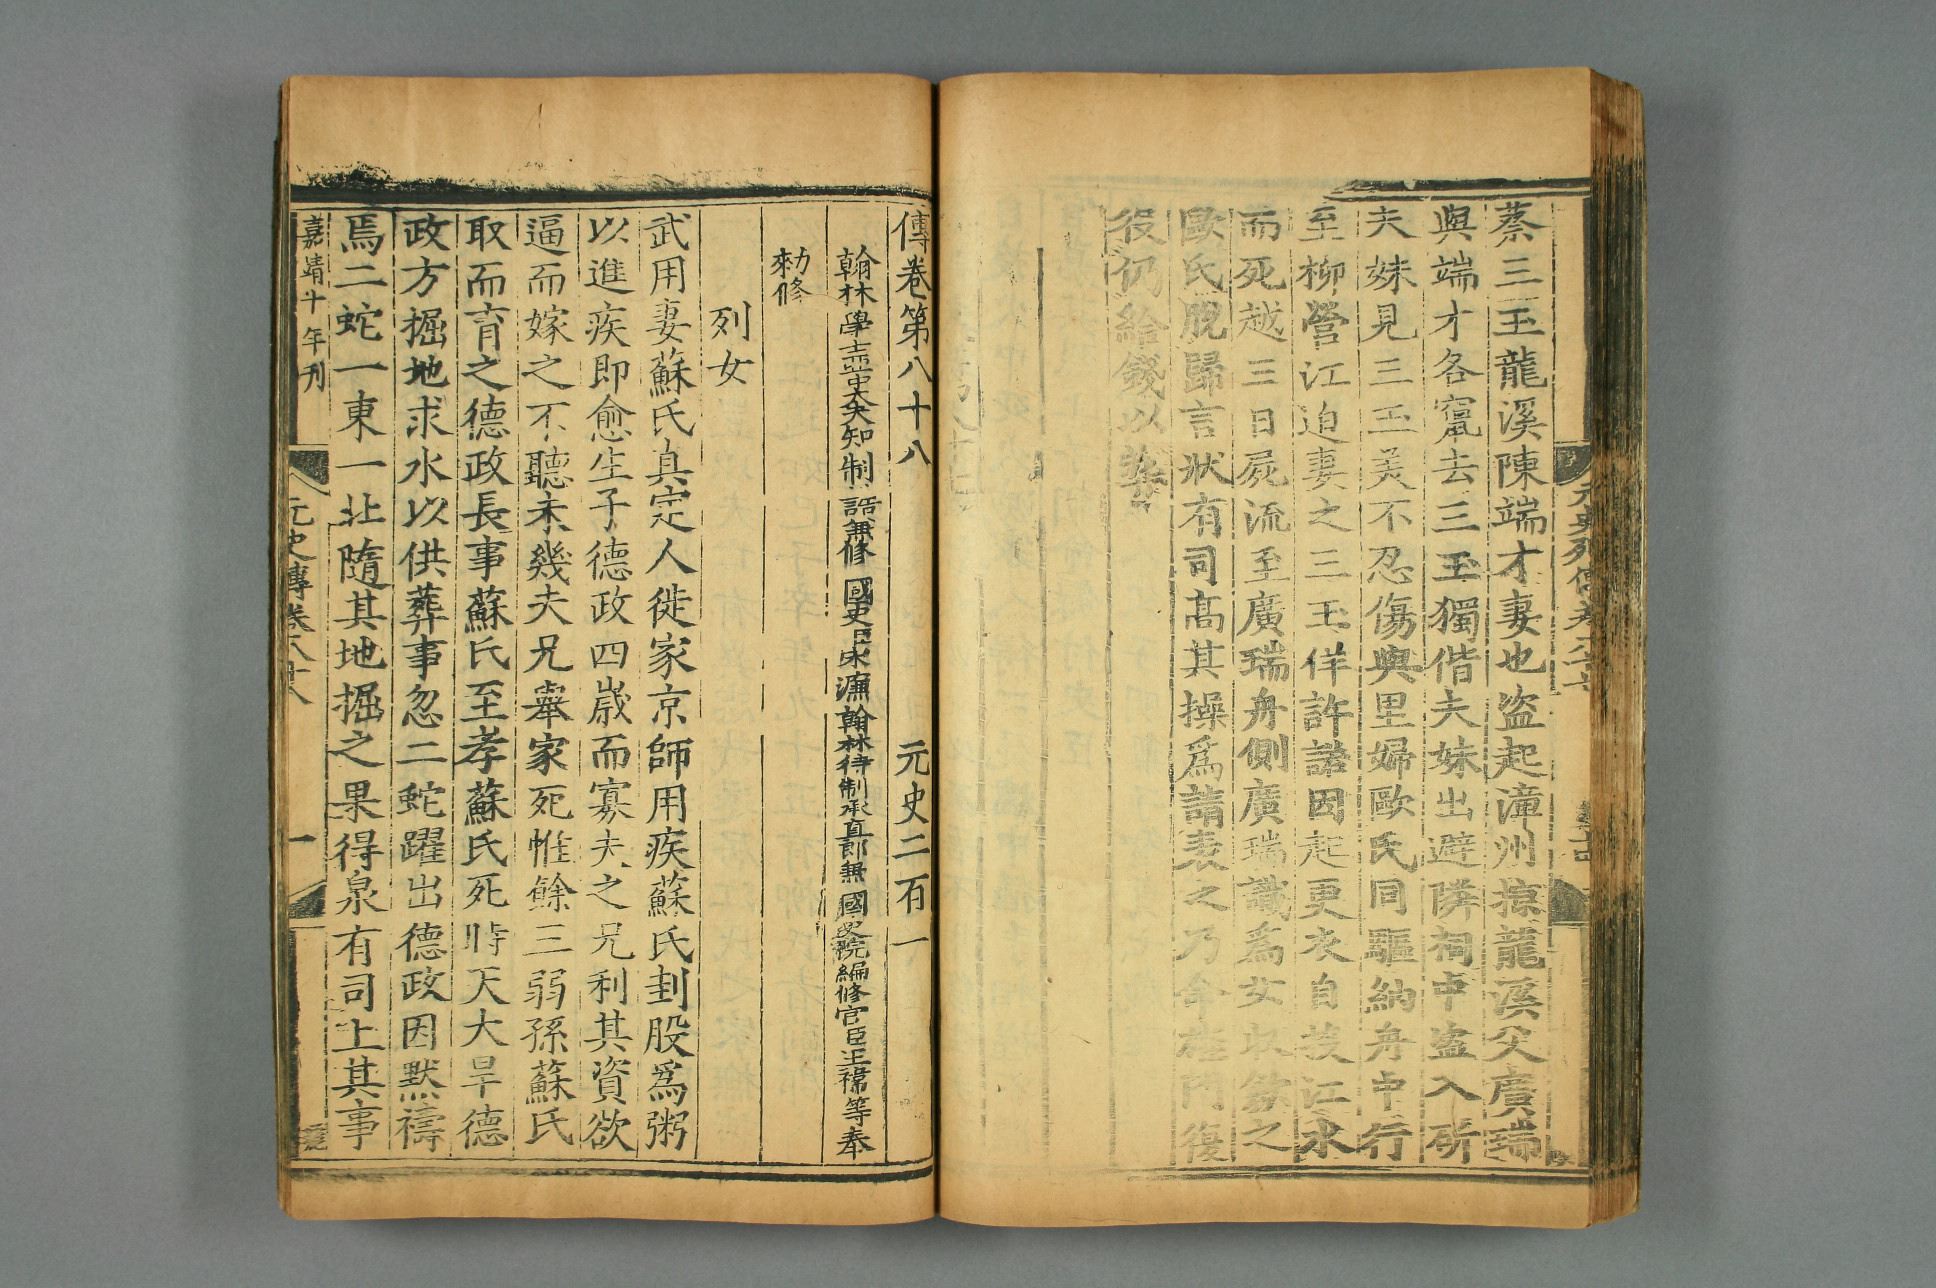 蔡三玉龍溪陳端才妻也盜起漳州掠龍溪父廣瑞
與端才各竄去三玉獨偕夫妹出避隣祠中盜入斫
夫妹見三玉美不忍傷與里婦歐氏同驅納舟中行
至柳營江迫妻之三玉佯許諾因起更衣自投江水
而死越三日屍流至廣瑞舟側廣瑞識為女收斂之
歐氏脫歸言狀有司高其操爲請表之乃命旌門復
役仍給錢以葬
傳卷第八十八 元史二百一
翰林學士亞中大夫知制誥兼修國史臣宋濂翰林待制承直郎兼國史院編修官臣王禕等奉
勑修
列女
武用妻蘇氏真定人徙家京師用疾蘇氏刲股爲粥
以進疾即愈生子德政四歲而寡夫之兄利其資欲
逼而嫁之不聽未幾夫兄舉家死惟餘三弱孫蘇氏
取而育之德政長事蘇氏至孝蘇氏死時天大旱德
政方掘地求水以供葬事忽二蛇躍出德政因默禱
焉二蛇一東一北隨其地掘之果得泉有司上其事
嘉靖十年刊
元史傳卷八十八
一